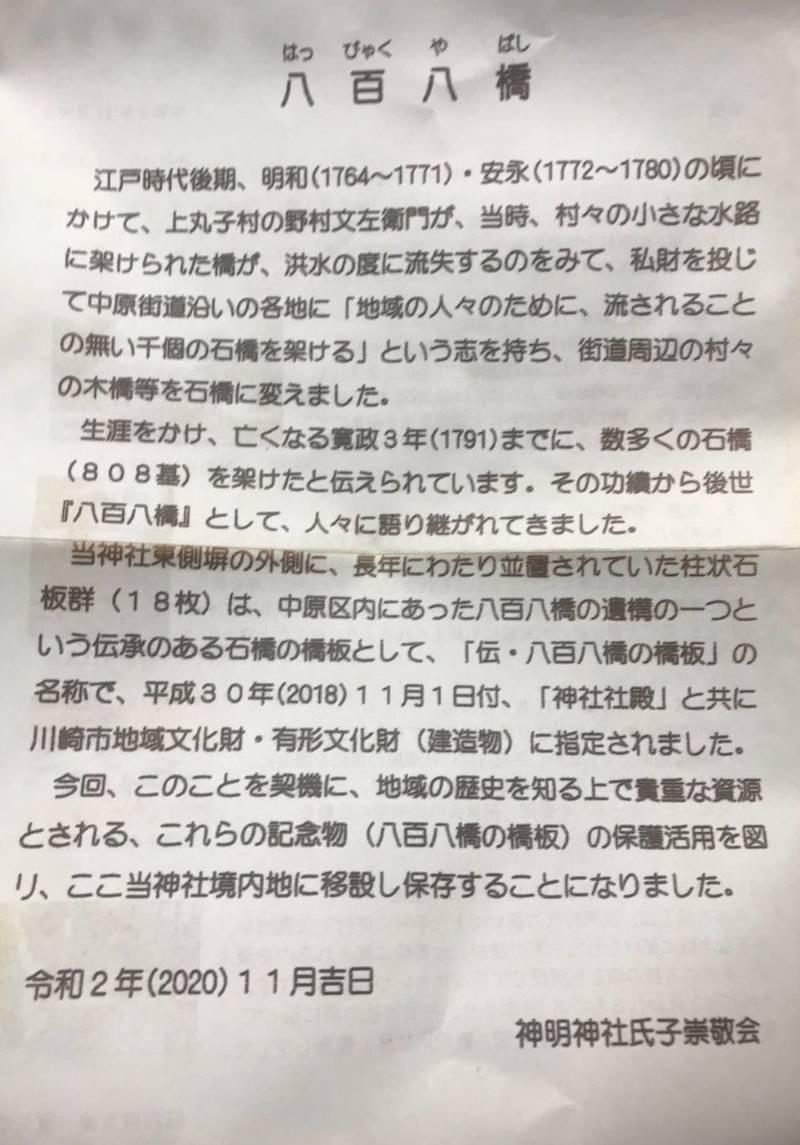 はっ ぴゃく や ばし
八百八橋
江戸時代後期、明和(1764～1771)・安永(1772～1780)の頃に
かけて、上丸子村の野村文左衛門が、当時、村々の小さな水路
に架けられた橋が、洪水の度に流失するのをみて、私財を投じ
て中原街道沿いの各地に「地域の人々のために、流されること
の無い千個の石橋を架ける」という志を持ち、街道周辺の村々
の木橋等を石橋に変えました。
生涯をかけ、亡くなる寛政３年(1791)までに、数多くの石橋
（８０８基）を架けたと伝えられています。その功績から後世
『八百八橋』として、人々に語り継がれてきました。
当神社東側塀の外側に、長年にわたり並置されていた柱状石
板群（１８枚）は、中原区内にあった八百八橋の遺構の一つと
いう伝承のある石橋の橋板として、「伝・八百八橋の橋板」の
名称で、平成３０年(2018)１１月１日付、「神社社殿」と共に
川崎市地域文化財・有形文化財（建造物）に指定されました。
今回、このことを契機に、地域の歴史を知る上で貴重な資源
とされる、これらの記念物（八百八橋の橋板）の保護活用を図
り、ここ当神社境内地に移設し保存することになりました。
令和２年(2020)１１月吉日
神明神社氏子崇敬会